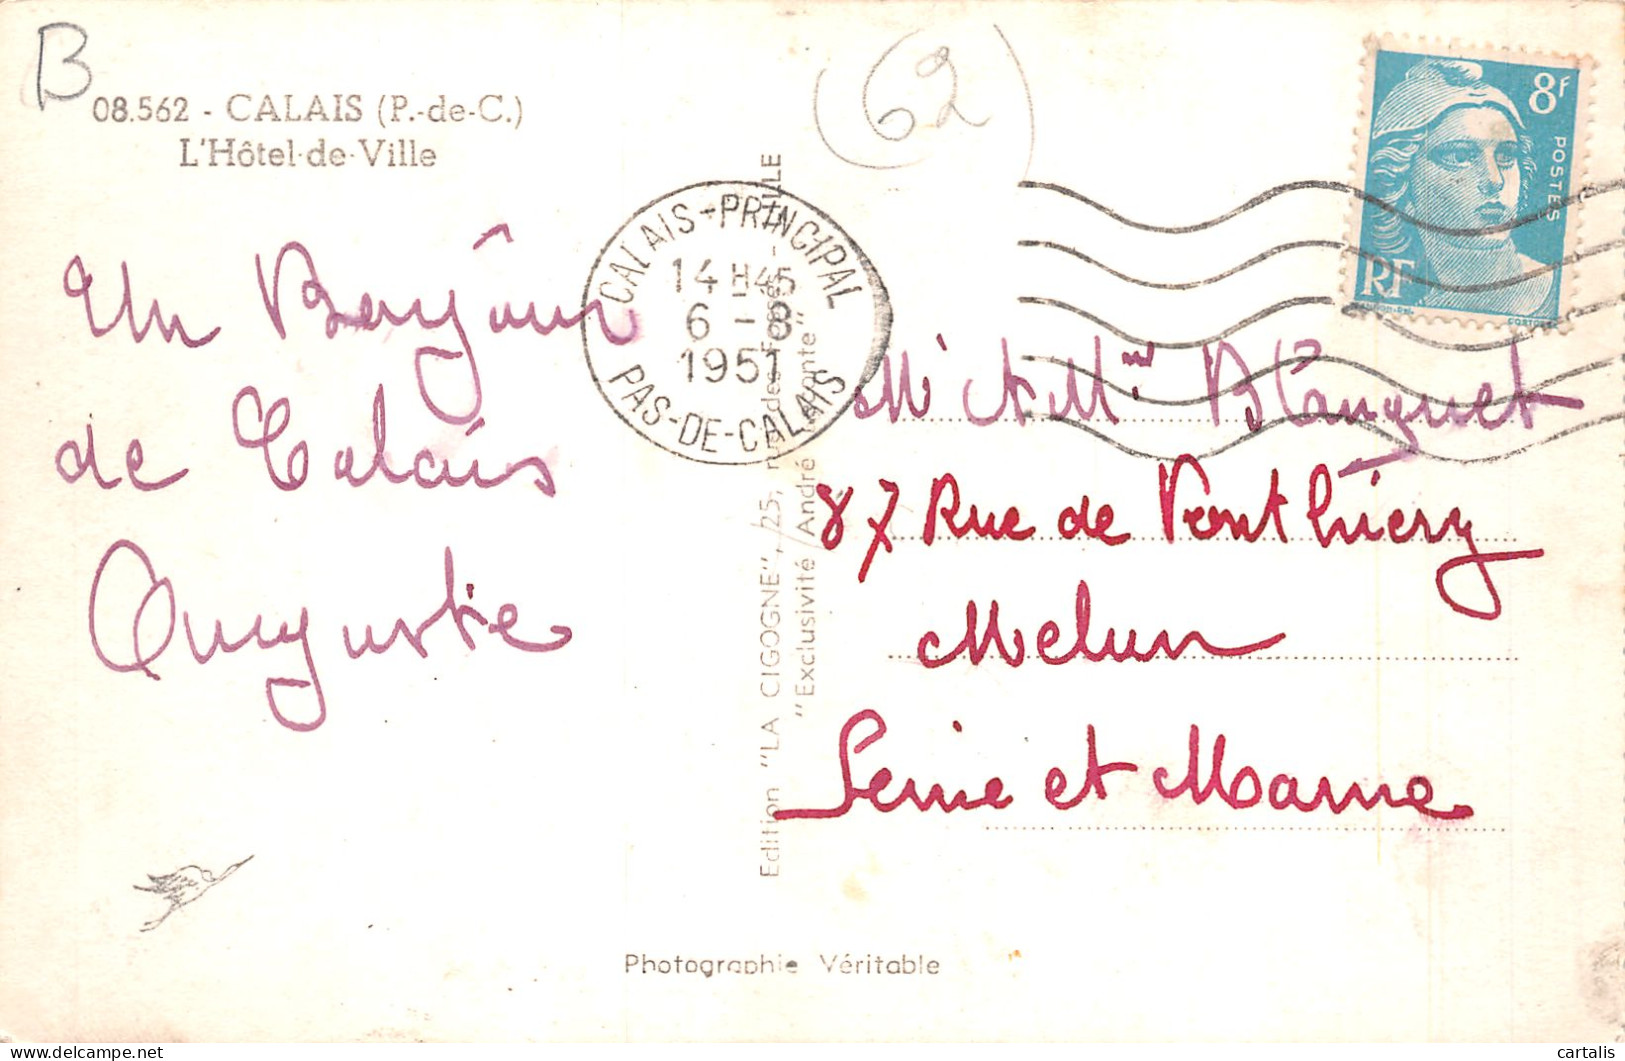 B
08.562 - CALAIS (P.-de-C.)
L'Hôtel-de-Ville
(62)
8F
POSTES
RF
CALAIS-PRINCIPAL
14 H45
6 - 8
1951
PAS-DE-CALAIS
Un Bonjour
de Calais
Auguste
Edition "LA CIGOGNE", 25,
"Exclusivité André
Mr & Mme Blanquet
87 Rue de Ponthierry
Melun
Seine et Marne
Photographie Véritable
cartalis